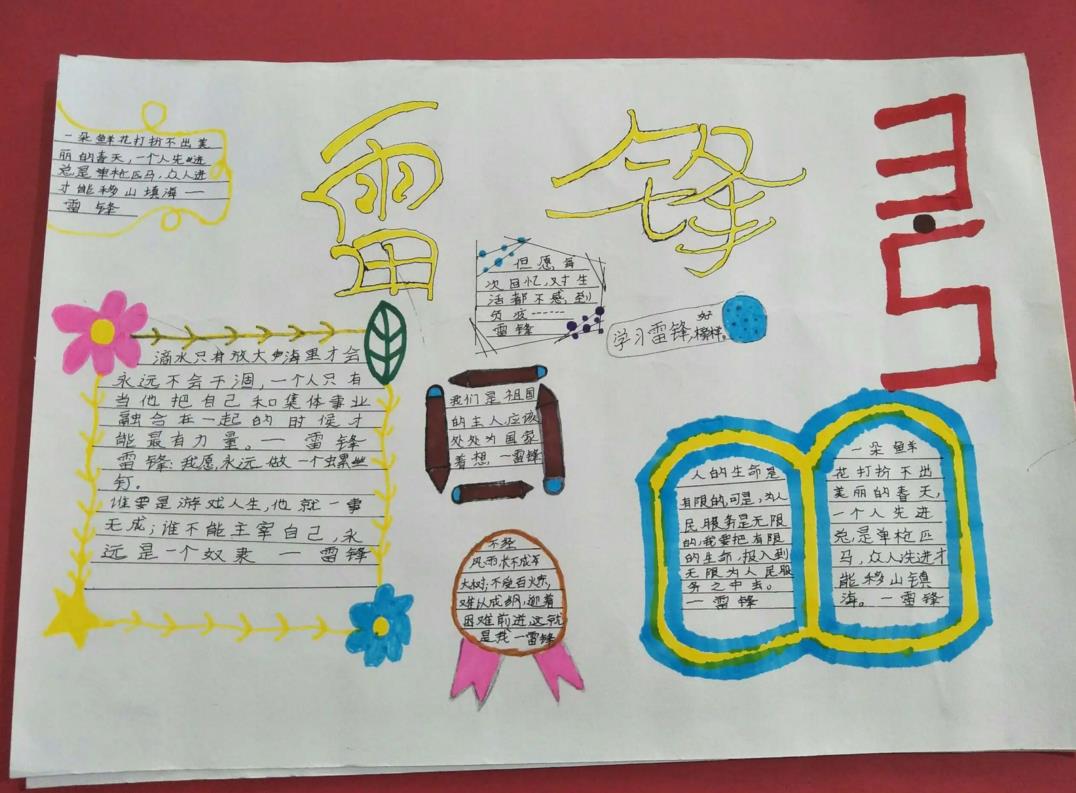 雷锋
3.5
一朵鲜花打扮不出美
丽的春天,一个人先进
总是单枪匹马,众人进
才能移山填海一
雷锋
但愿每
次回忆,对生
活都不感到
负疚------
雷锋
学习雷锋,好榜样。
滴水只有放大海里才会
永远不会干涸,一个人只有
当他把自己和集体事业
融合在一起的时候才
能最有力量。一 雷锋
雷锋:我愿永远做一个螺丝
钉。
谁要是游戏人生,他就一事
无成;谁不能主宰自己,永
远是一个奴隶 一 雷锋
我们是祖国
的主人,应该
处处为国家
着想,一雷锋
不经
风雨,长不成
大树;不受百火炼,
难以成钢,迎着
困难前进,这就
是我一雷锋
人的生命是
有限的,可是,为人
民服务是无限
的,我要把有限
的生命,投入到
无限为人民服
务之中去。
一雷锋
一朵鲜
花打扮不出
美丽的春天,
一个人先进
总是单枪匹
马,众人先进才
能移山镇
海。一雷锋